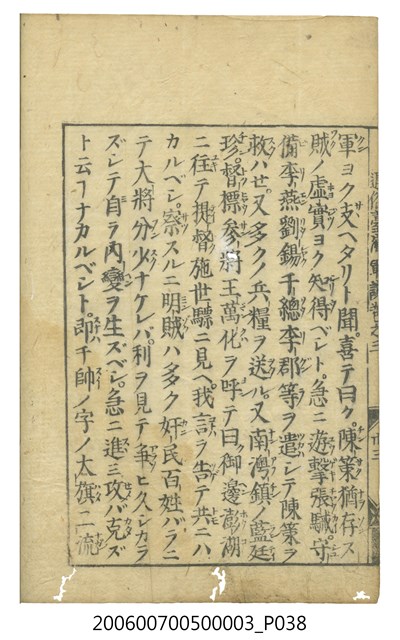 軍ヨク支ヘタリト聞喜テ曰ク陳策猶存ス
賊ノ虚實ヨク知得ベシト急ニ遊擊張駴守
備李燕劉錫千總李郡等ヲ遣シテ陳策ヲ
救ハセ又多クノ兵糧ヲ送ル又南灣鎮ノ藍廷
珍督標参將王萬化ヲ呼テ曰ク御邊澎湖
ニ往テ提督施世驃ニ見ヘ我言ヲ告テ共ニハ
カルベシ察スルニ明賊ハ多ク奸民百姓バラニ
テ大將分少ナケレバ利ヲ見テ爭ヒ久シカラ
ズシテ自ラ内變ヲ生ズベシ急ニ進ミ攻バ克ズ
ト云ヿナカルベシト即チ帥ノ字ノ大旗二流
卅三
200600700500003_P038